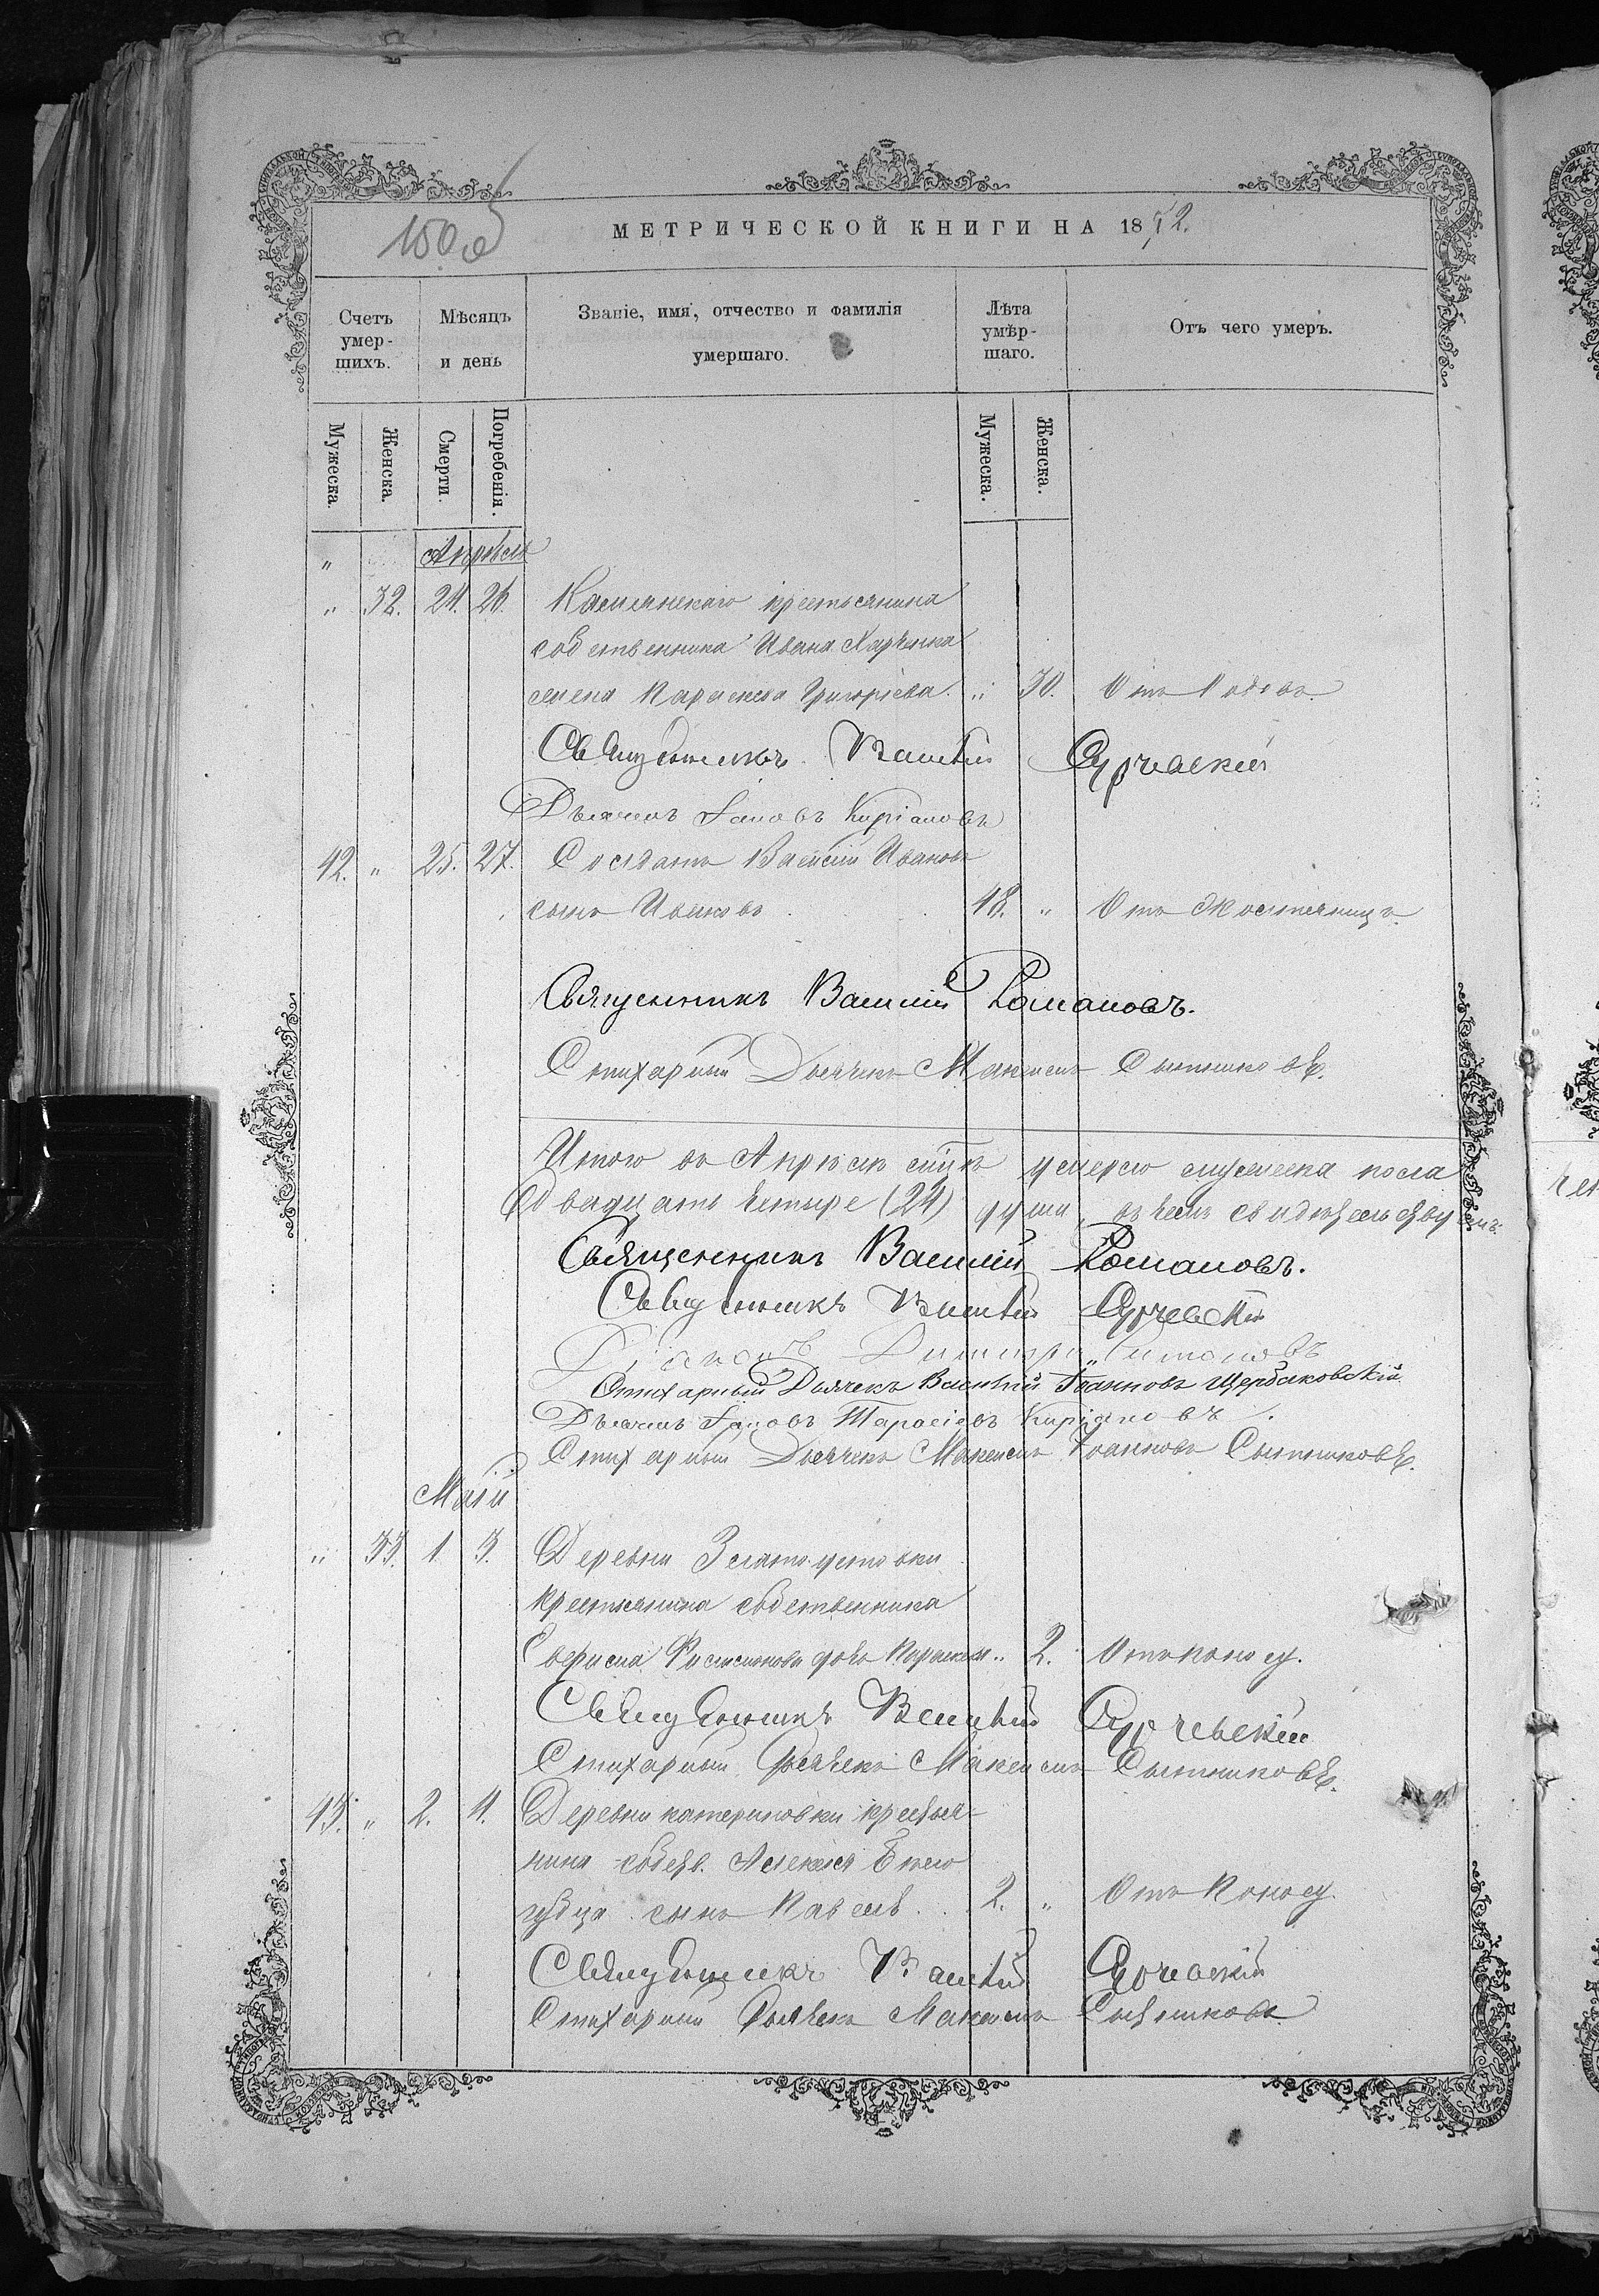 150 об
МЕТРИЧЕСКОЙ КНИГИ НА 1872.
Счетъ умер-шихъ.
Мѣсяцъ и день
Званіе, имя, отчество и фамилія умершаго.
Лѣта умѣр-шаго.
Отъ чего умеръ.
Мужеска. Женска. Смерти. Погребенія. Мужеска. Женска.
" Апрѣль
" 32. 24. 26. крестьянина
собственника Ивана Харченка
жена Параскева Григорьева. " 30. Отъ родовъ.
Священникъ Василій
Дьячекъ Іаковъ Киріановъ
42. " 25. 27. Солдатъ Василій Ивановъ
сынъ Ивановъ 48. " Отъ
Священникъ Василій Романовъ.
Стихарный Дьячекъ Максимъ Сытниковъ.
Итого въ Апрѣлѣ м͠цѣ умерло мужеска пола
двадцать четыре (24) души, въ чемъ свидѣтельствуемъ
Священникъ Василій Романовъ.
Священникъ Василій
Діаконъ Димитрій
Стихарный Дьячекъ Василій Іоанновъ Щербаковскій
Дьячекъ Іаковъ Тарасіевъ Киріановъ.
Стихарный Дьячекъ Максимъ Іоанновъ Сытниковъ.
Май
" 33. 1 3. Деревни Златоустовки
крестьянина собственника
дочь Параскева " 2. Отъ поносу.
Священникъ Василій
Стихарный Дьячекъ Максимъ Сытниковъ.
43. " 2. 4. Деревни катериновки крестья-
нина собств. Алексѣя
сынъ Павелъ . . 2. " Отъ Поносу.
Священникъ Василій
Стихарный Дьячекъ Максимъ Сытниковъ